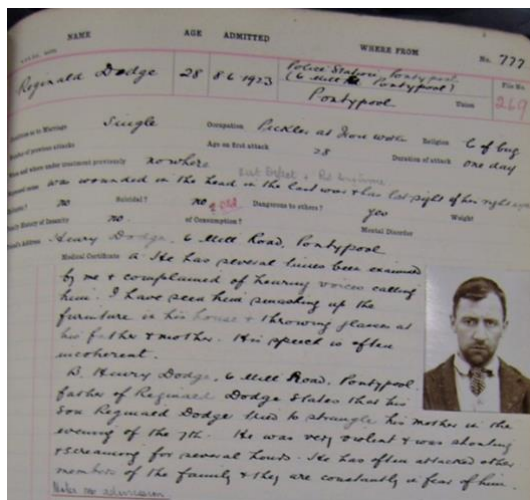 NAME AGE ADMITTED WHERE FROM No. 777
Reginald Dodge 28 8·6·1923 Police Station, Pontypool
(6 Mill Pontypool)
Pontypool Union File No. 269
Condition as to Marriage Single Occupation Pickler at Iron works Religion C of Eng
Number of previous attacks Age on first attack 28 Duration of attack one day
When and where under treatment previously nowhere
Supposed cause was wounded in the head in the last war & has lost sight of her right eye
Epileptic? no Suicidal? no Dangerous to others? yes Weight
Family History of Insanity no. of Consumption? Mental Disorder
Friend's Address Henry Dodge, 6 Mill Road, Pontypool
Medical Certificate A He has several times been examined
by me & complained of hearing voices calling
him. I have seen him smashing up the
furniture in his house & throwing glasses at
his father & mother. His speech is often
incoherent.
B. Henry Dodge, 6 Mill Road, Pontypool
father of Reginald Dodge states that his
son Reginald Dodge tried to strangle his mother in the
evening of the 7th. He was very violent & was shouting
& screaming for several hours. He has often attacked other
members of the family & they are constantly in fear of him.
State on admission